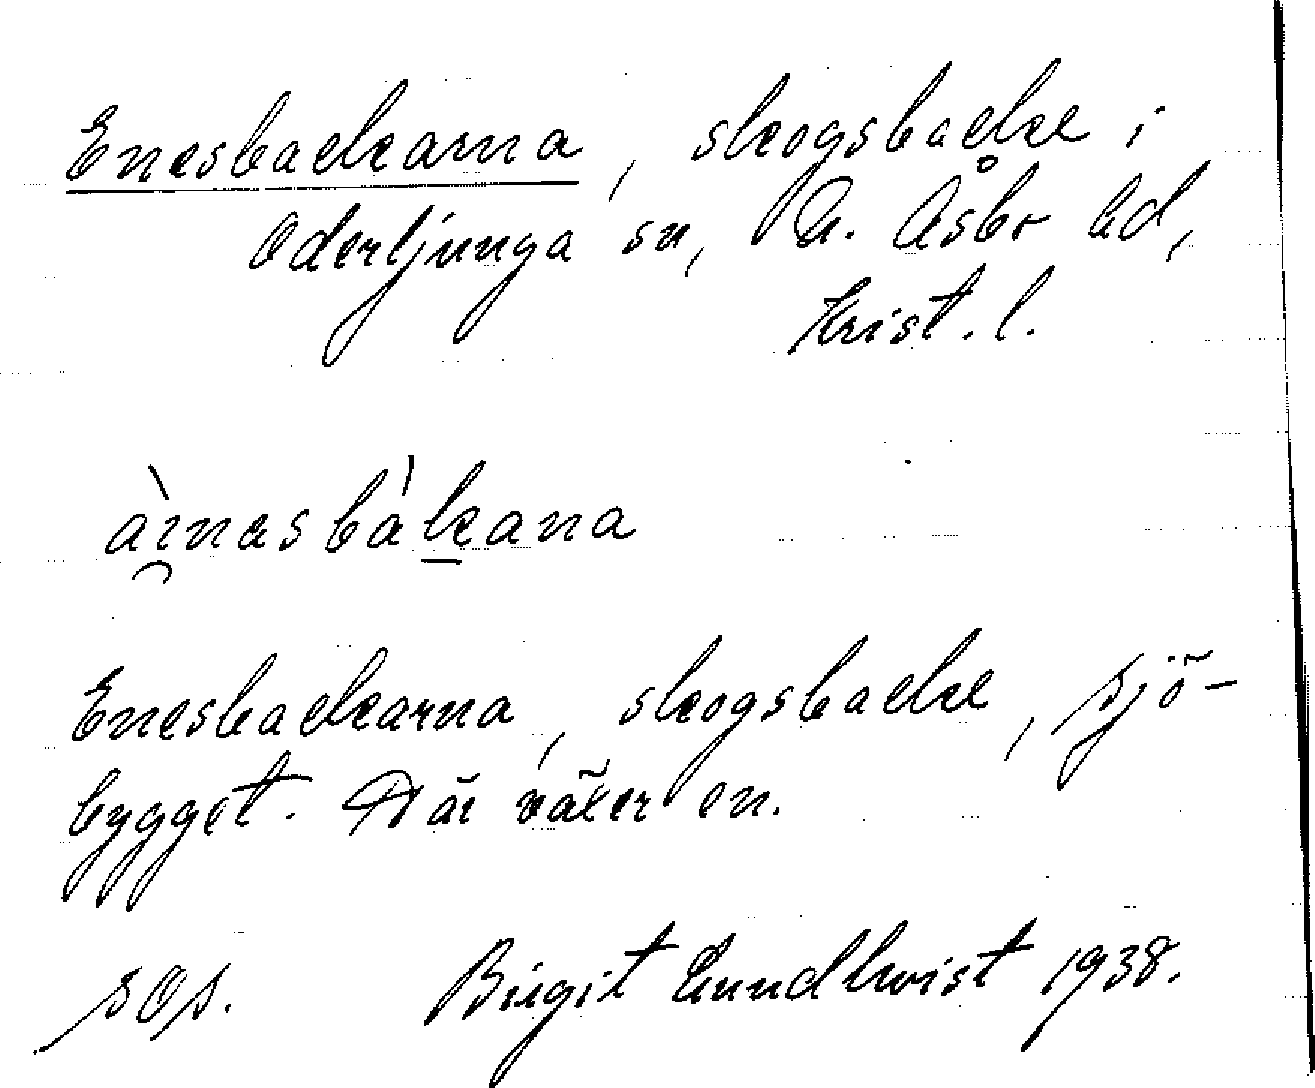 Enesbackarna, skogsbacke i
Oderljunga sn, N. Åsbo hd,
Krist. l.
àinasbàkana
Enesbackarna, skogsbacke, sjö-
bygget. Där växer en.
SOS. Birgit Lundkvist 1938.